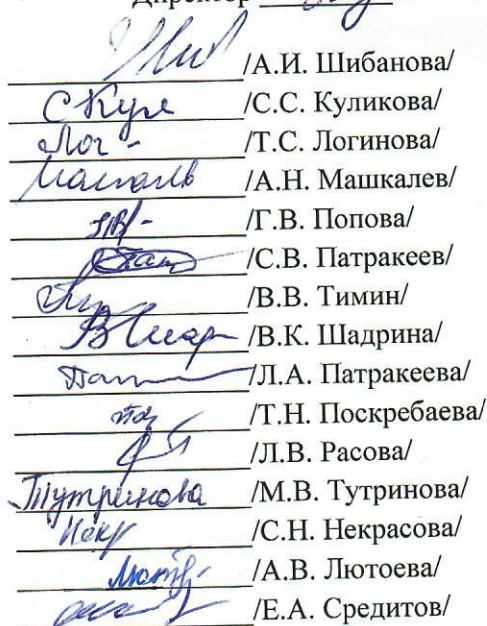 Директор
/А.И. Шибанова/
С Кул /С.С. Куликова/
Лог - /Т.С. Логинова/
/А.Н. Машкалев/
/Г.В. Попова/
/С.В. Патракеев/
/В.В. Тимин/
/В.К. Шадрина/
/Л.А. Патракеева/
/Т.Н. Поскребаева/
/Л.В. Расова/
Тутринова /М.В. Тутринова/
Некр /С.Н. Некрасова/
/А.В. Лютоева/
/Е.А. Средитов/